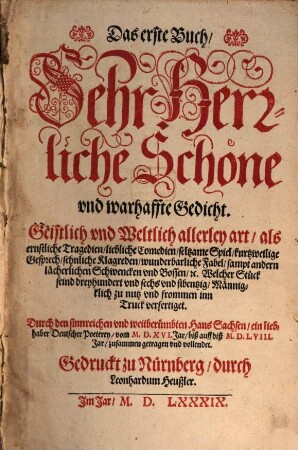 Das erste Buch/
Sehr Herr⸗
liche Schöne
vnd warhaffte Gedicht.
Geistlich vnd Weltlich allerley art/ als
ernstliche Tragedien/ liebliche Comedien/ seltzame Spiel/ kurtzweilige
Gesprech/ sehnliche Klagreden/ wunderbarliche Fabel/ sampt andern
lächerlichen Schwencken vnd Bossen/ ꝛc. Welcher Stück
seind dreyhundert vnd sechs vnd sibentzig/ Männig⸗
klich zu nutz vnd frommen inn
Truck verfertiget.
Durch den sinnreichen vnd weitberümbten Hans Sachsen/ ein lieb⸗
haber Deutscher Poeterey/ vom M. D. XVI. Jar/ biß auff diß M. D. LVIII.
Jar/ zusammen getragen vnd vollendet.
Gedruckt zu Nürnberg/ durch
Leonhardum Heußler.
Im Jar/ M. D. LXXXIX.